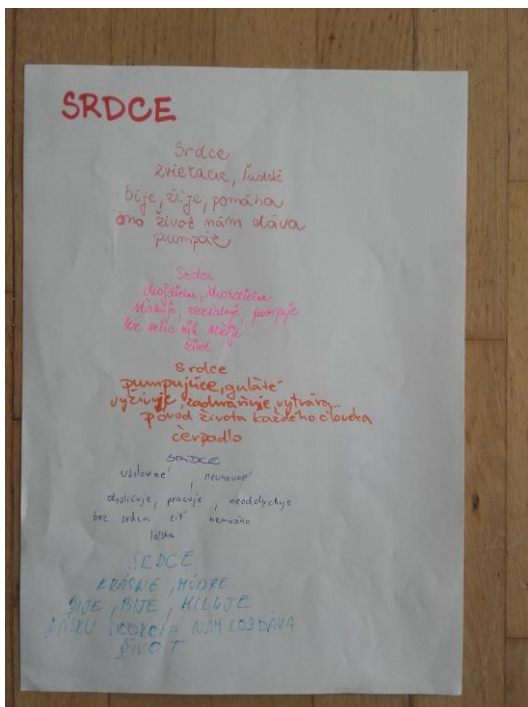 SRDCE
Srdce
zvieracie, ľudské
bije, žije, pomáha
ono život nám dáva
pumpať
Srdce
sťahuje, pumpuje
život
Srdce
pumpujúce, guľaté
vyživuje, zachraňuje, vytvára...
pôvod života každého človeka
čerpadlo
SRDCE
usilovné, neúnavné
okysličuje, pracuje, neoddychuje
bez srdca žiť nemožno
láska
SRDCE
KRÁSNE, MÚDRE
ŽIJE, BIJE, MILUJE
LÁSKU NÁM ROZDÁVA
ŽIVOT